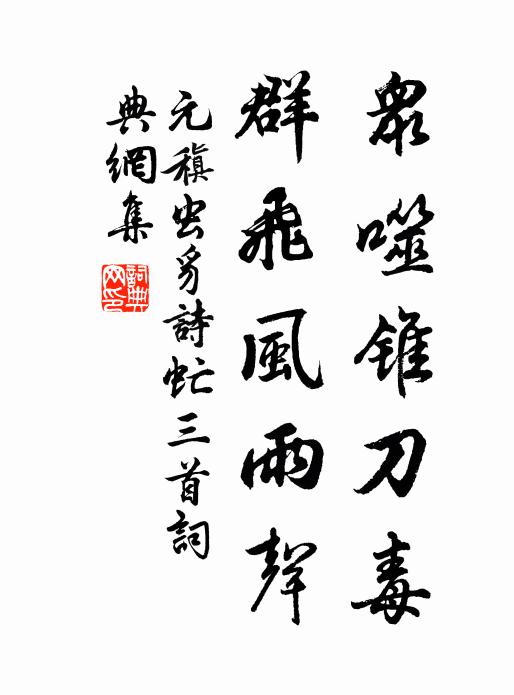 衆噬錐刀毒
群飛風雨聲
元稹虫豸詩虻三首詞
典網集
詞典網印